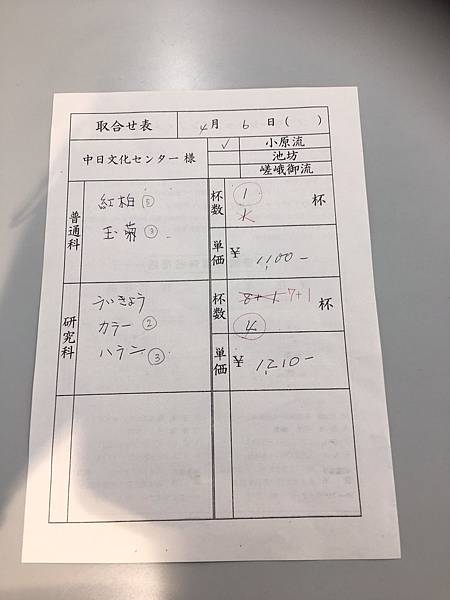 取合せ表 4月 6日( )
中日文化センター 様
✓ 小原流
池坊
嵯峨御流
普通科
紅柏 ⑤
玉菊 ③
杯数 1 杯
単価 ¥ 1,100-
研究科
ういきょう
カラー ②
ハラン ③
杯数 8+1 7+1 杯
4
単価 ¥ 1,210-